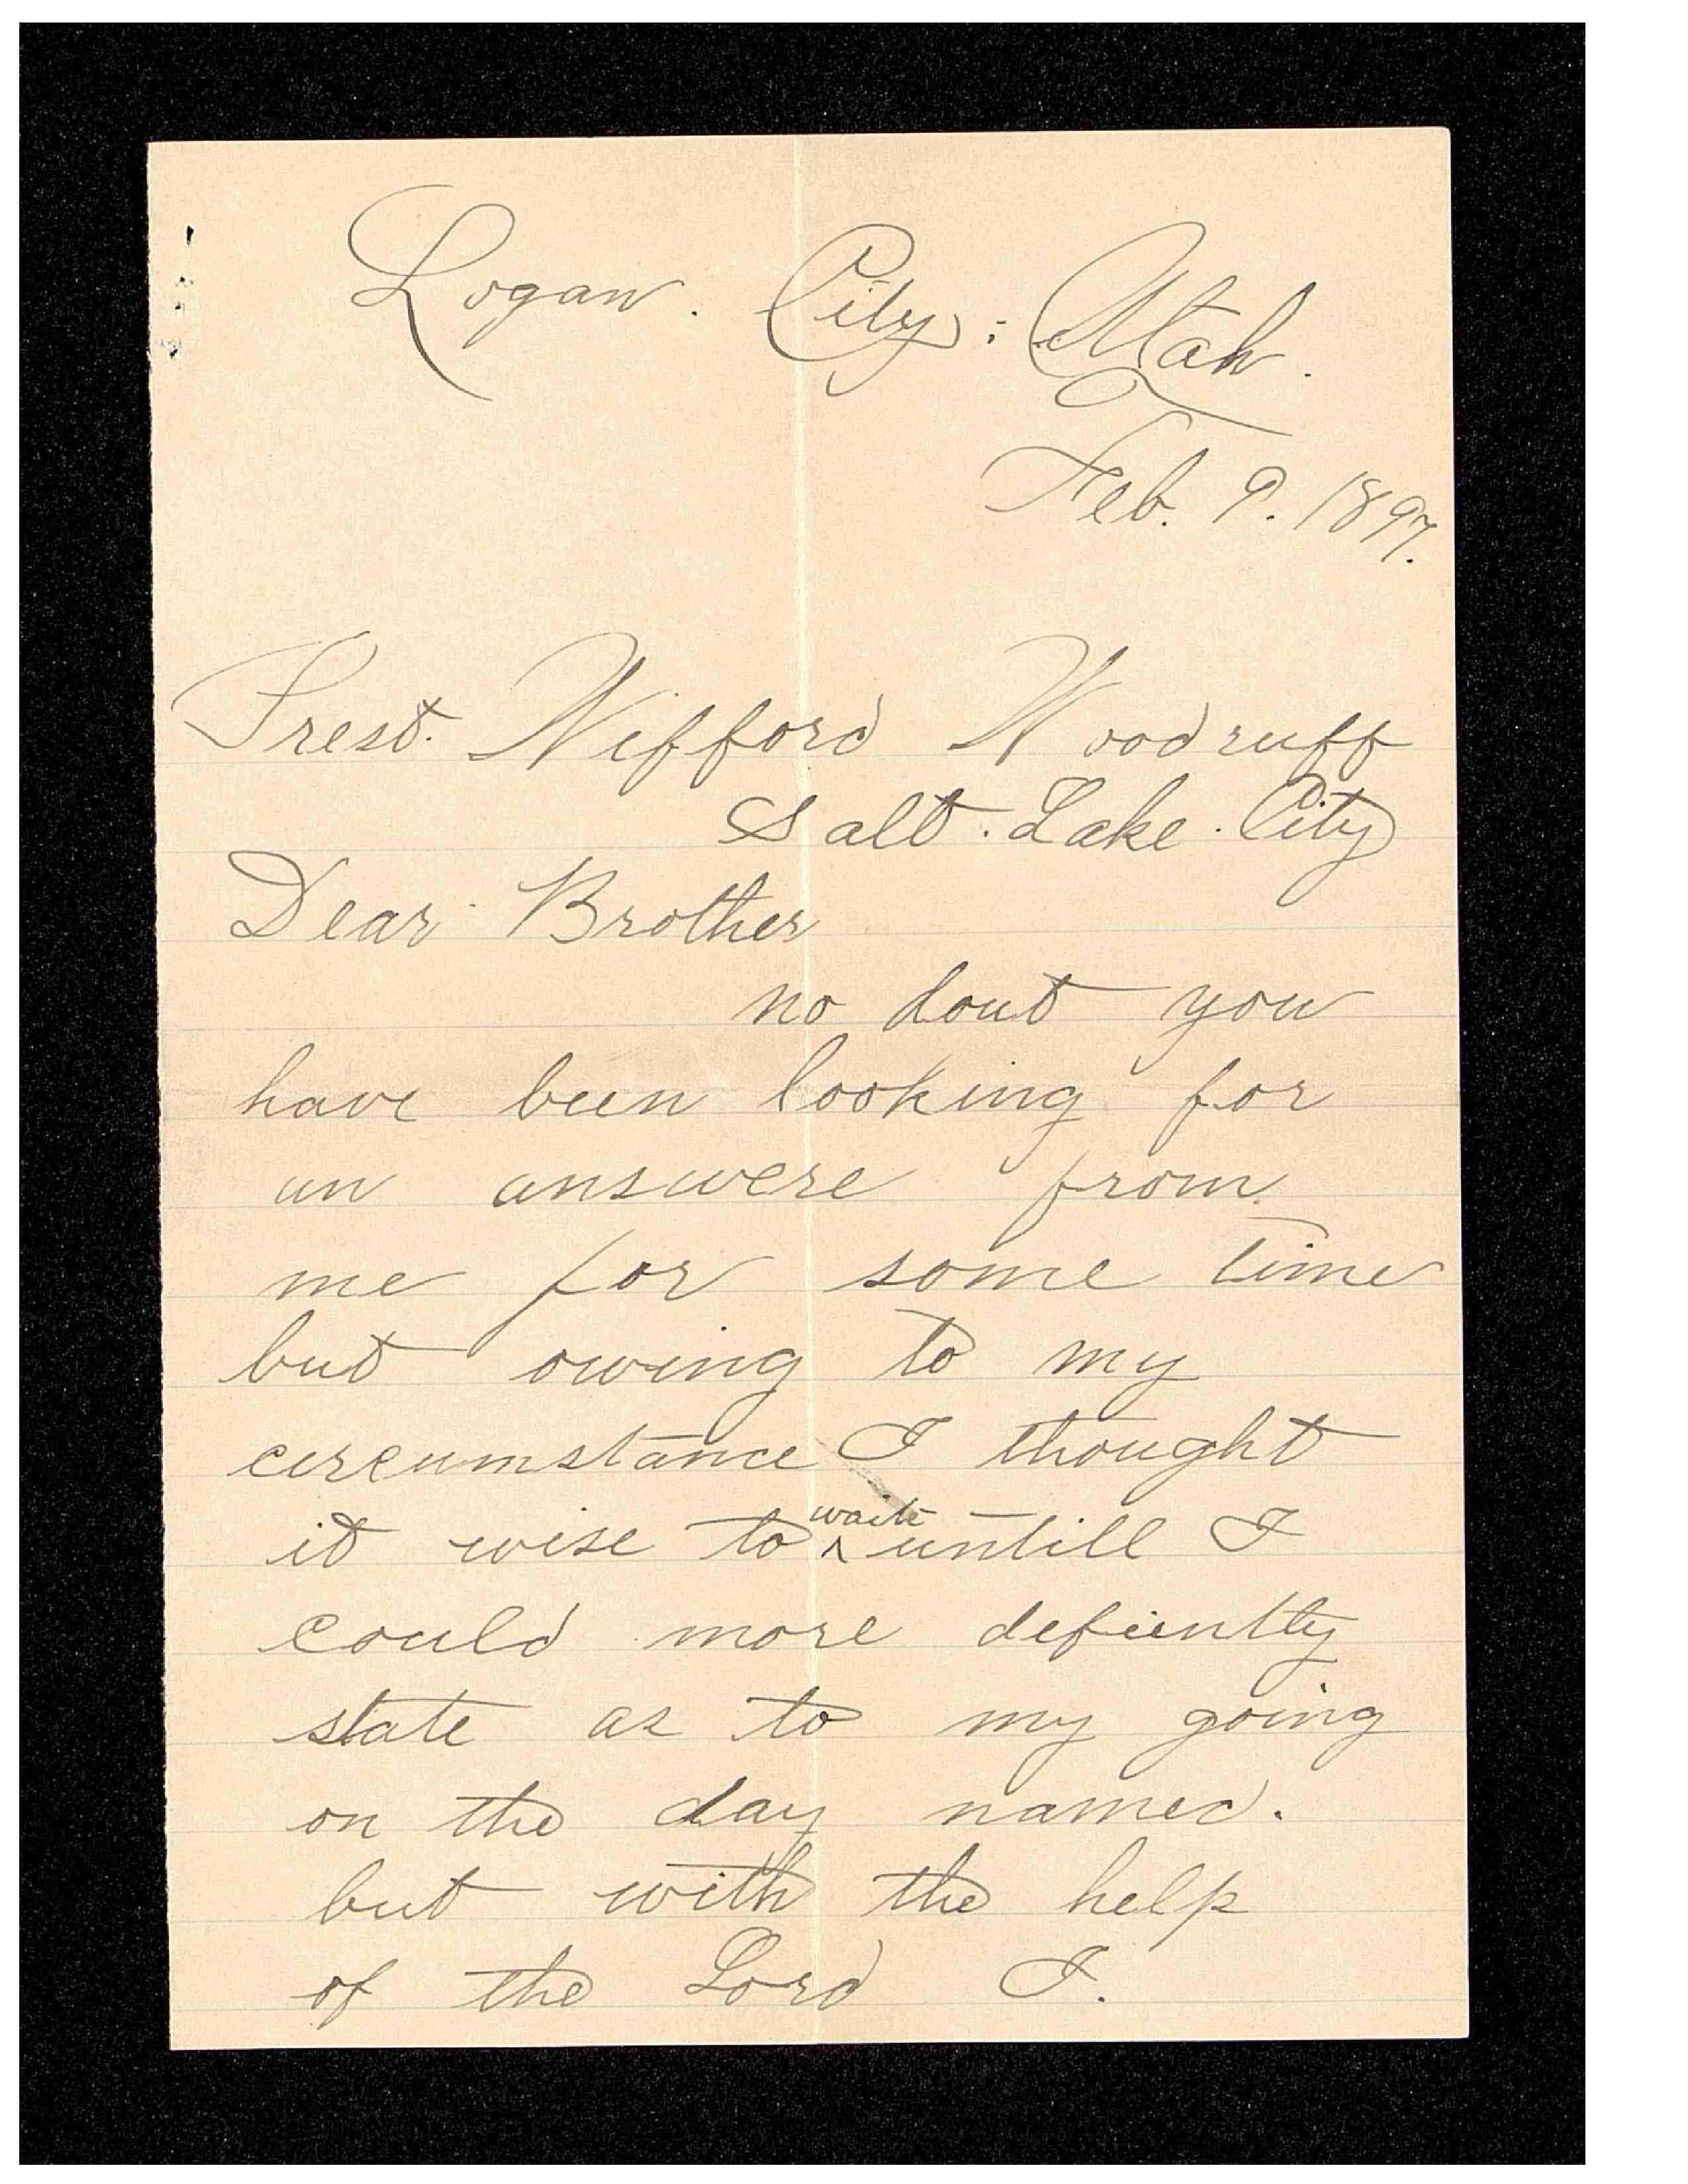 Logan. City; Utah.
Feb. 9. 1897.
Prest. Wifford Woodruff
Salt. Lake. City
Dear Brother
no dout you
have been looking for
an answere from
me for some time
but owing to my
circumstance I thought
it wise to ^waite untill I
could more defiently
state as to my going
on the day named.
but with the help
of the Lord I.